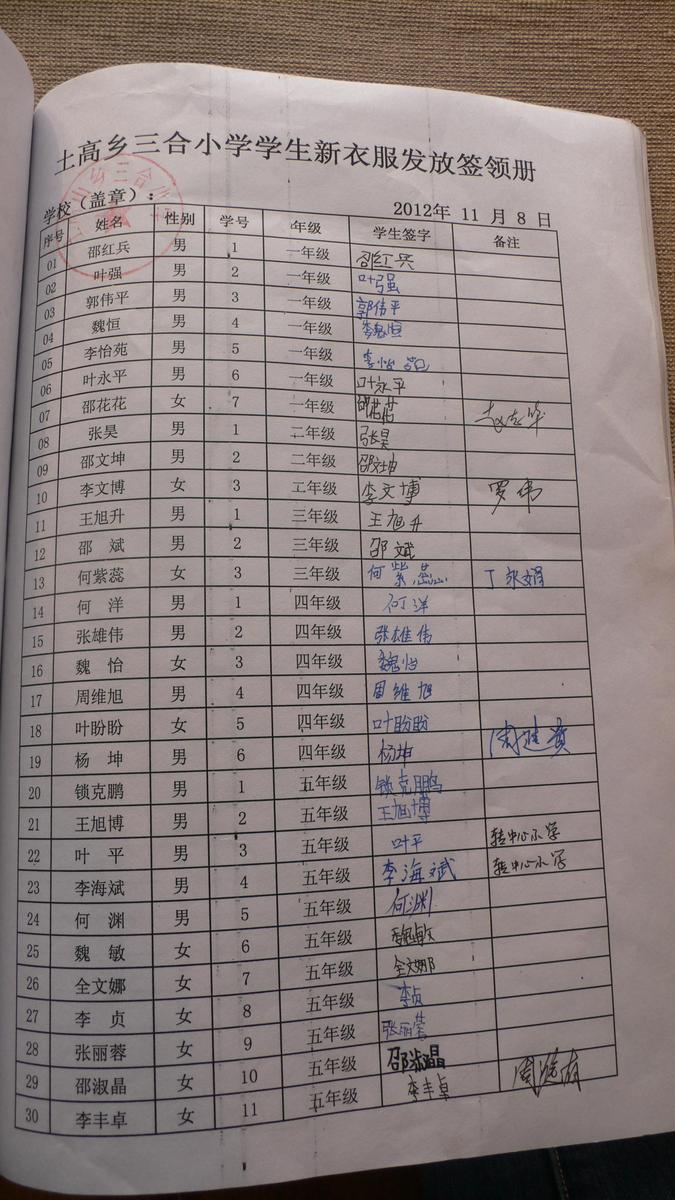 土高乡三合小学学生新衣服发放签领册
学校（盖章）： 2012年 11 月 8 日
序号 姓名 性别 学号 年级 学生签字 备注
01 邵红兵 男 1 一年级 邵红兵
02 叶强 男 2 一年级 叶强
03 郭伟平 男 3 一年级 郭伟平
04 魏恒 男 4 一年级 魏恒
05 李怡苑 男 5 一年级 李怡苑
06 叶永平 男 6 一年级 叶永平
07 邵花花 女 7 一年级 邵花花
08 张昊 男 1 二年级 张昊
09 邵文坤 男 2 二年级 邵文坤
10 李文博 女 3 二年级 李文博 罗伟
11 王旭升 男 1 三年级 王旭升
12 邵 斌 男 2 三年级 邵斌
13 何紫蕊 女 3 三年级 何紫蕊 丁永娟
14 何 洋 男 1 四年级 何洋
15 张雄伟 男 2 四年级 张雄伟
16 魏 怡 女 3 四年级 魏怡
17 周维旭 男 4 四年级 周维旭
18 叶盼盼 女 5 四年级 叶盼盼
19 杨 坤 男 6 四年级 杨坤
20 锁克鹏 男 1 五年级 锁克鹏
21 王旭博 男 2 五年级 王旭博
22 叶 平 男 3 五年级 叶平 转中心小学
23 李海斌 男 4 五年级 李海斌 转中心小学
24 何 渊 男 5 五年级 何渊
25 魏 敏 女 6 五年级 魏敏
26 全文娜 女 7 五年级 全文娜
27 李 贞 女 8 五年级 李贞
28 张丽蓉 女 9 五年级 张丽蓉
29 邵淑晶 女 10 五年级 邵淑晶
30 李丰卓 女 11 五年级 李丰卓